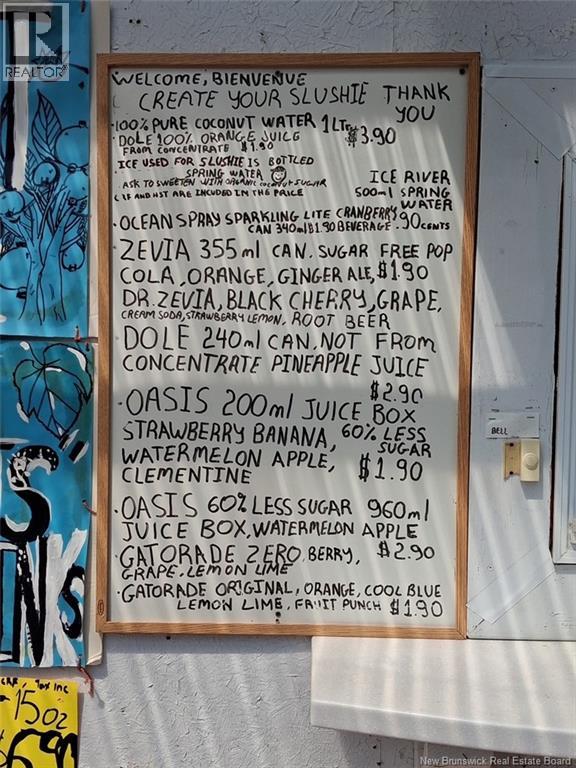 REALTOR®
WELCOME, BIENVENUE
CREATE YOUR SLUSHIE THANK YOU
100% PURE COCONUT WATER 1 LTR $3.90
DOLE 100% ORANGE JUICE
FROM CONCENTRATE $1.90
ICE USED FOR SLUSHIE IS BOTTLED
SPRING WATER
ASK TO SWEETEN WITH ORGANIC COCONUT SUGAR
IF AND HST ARE INCLUDED IN THE PRICE
ICE RIVER
500ml SPRING
WATER
.90 CENTS
OCEAN SPRAY SPARKLING LITE CRANBERRY
CAN 340ml $1.90 BEVERAGE.
ZEVIA 355ml CAN. SUGAR FREE POP
COLA, ORANGE, GINGER ALE, $1.90
DR. ZEVIA, BLACK CHERRY, GRAPE,
CREAM SODA, STRAWBERRY LEMON, ROOT BEER
DOLE 240ml CAN. NOT FROM
CONCENTRATE PINEAPPLE JUICE
$2.90
OASIS 200ml JUICE BOX
STRAWBERRY BANANA, 60% LESS SUGAR
WATERMELON APPLE, $1.90
CLEMENTINE
OASIS 60% LESS SUGAR 960ml
JUICE BOX, WATERMELON APPLE
GATORADE ZERO, BERRY, $2.90
GRAPE, LEMON LIME
GATORADE ORIGINAL, ORANGE, COOL BLUE
LEMON LIME, FRUIT PUNCH $1.90
BELL
TAX INC
15 OZ
New Brunswick Real Estate Board